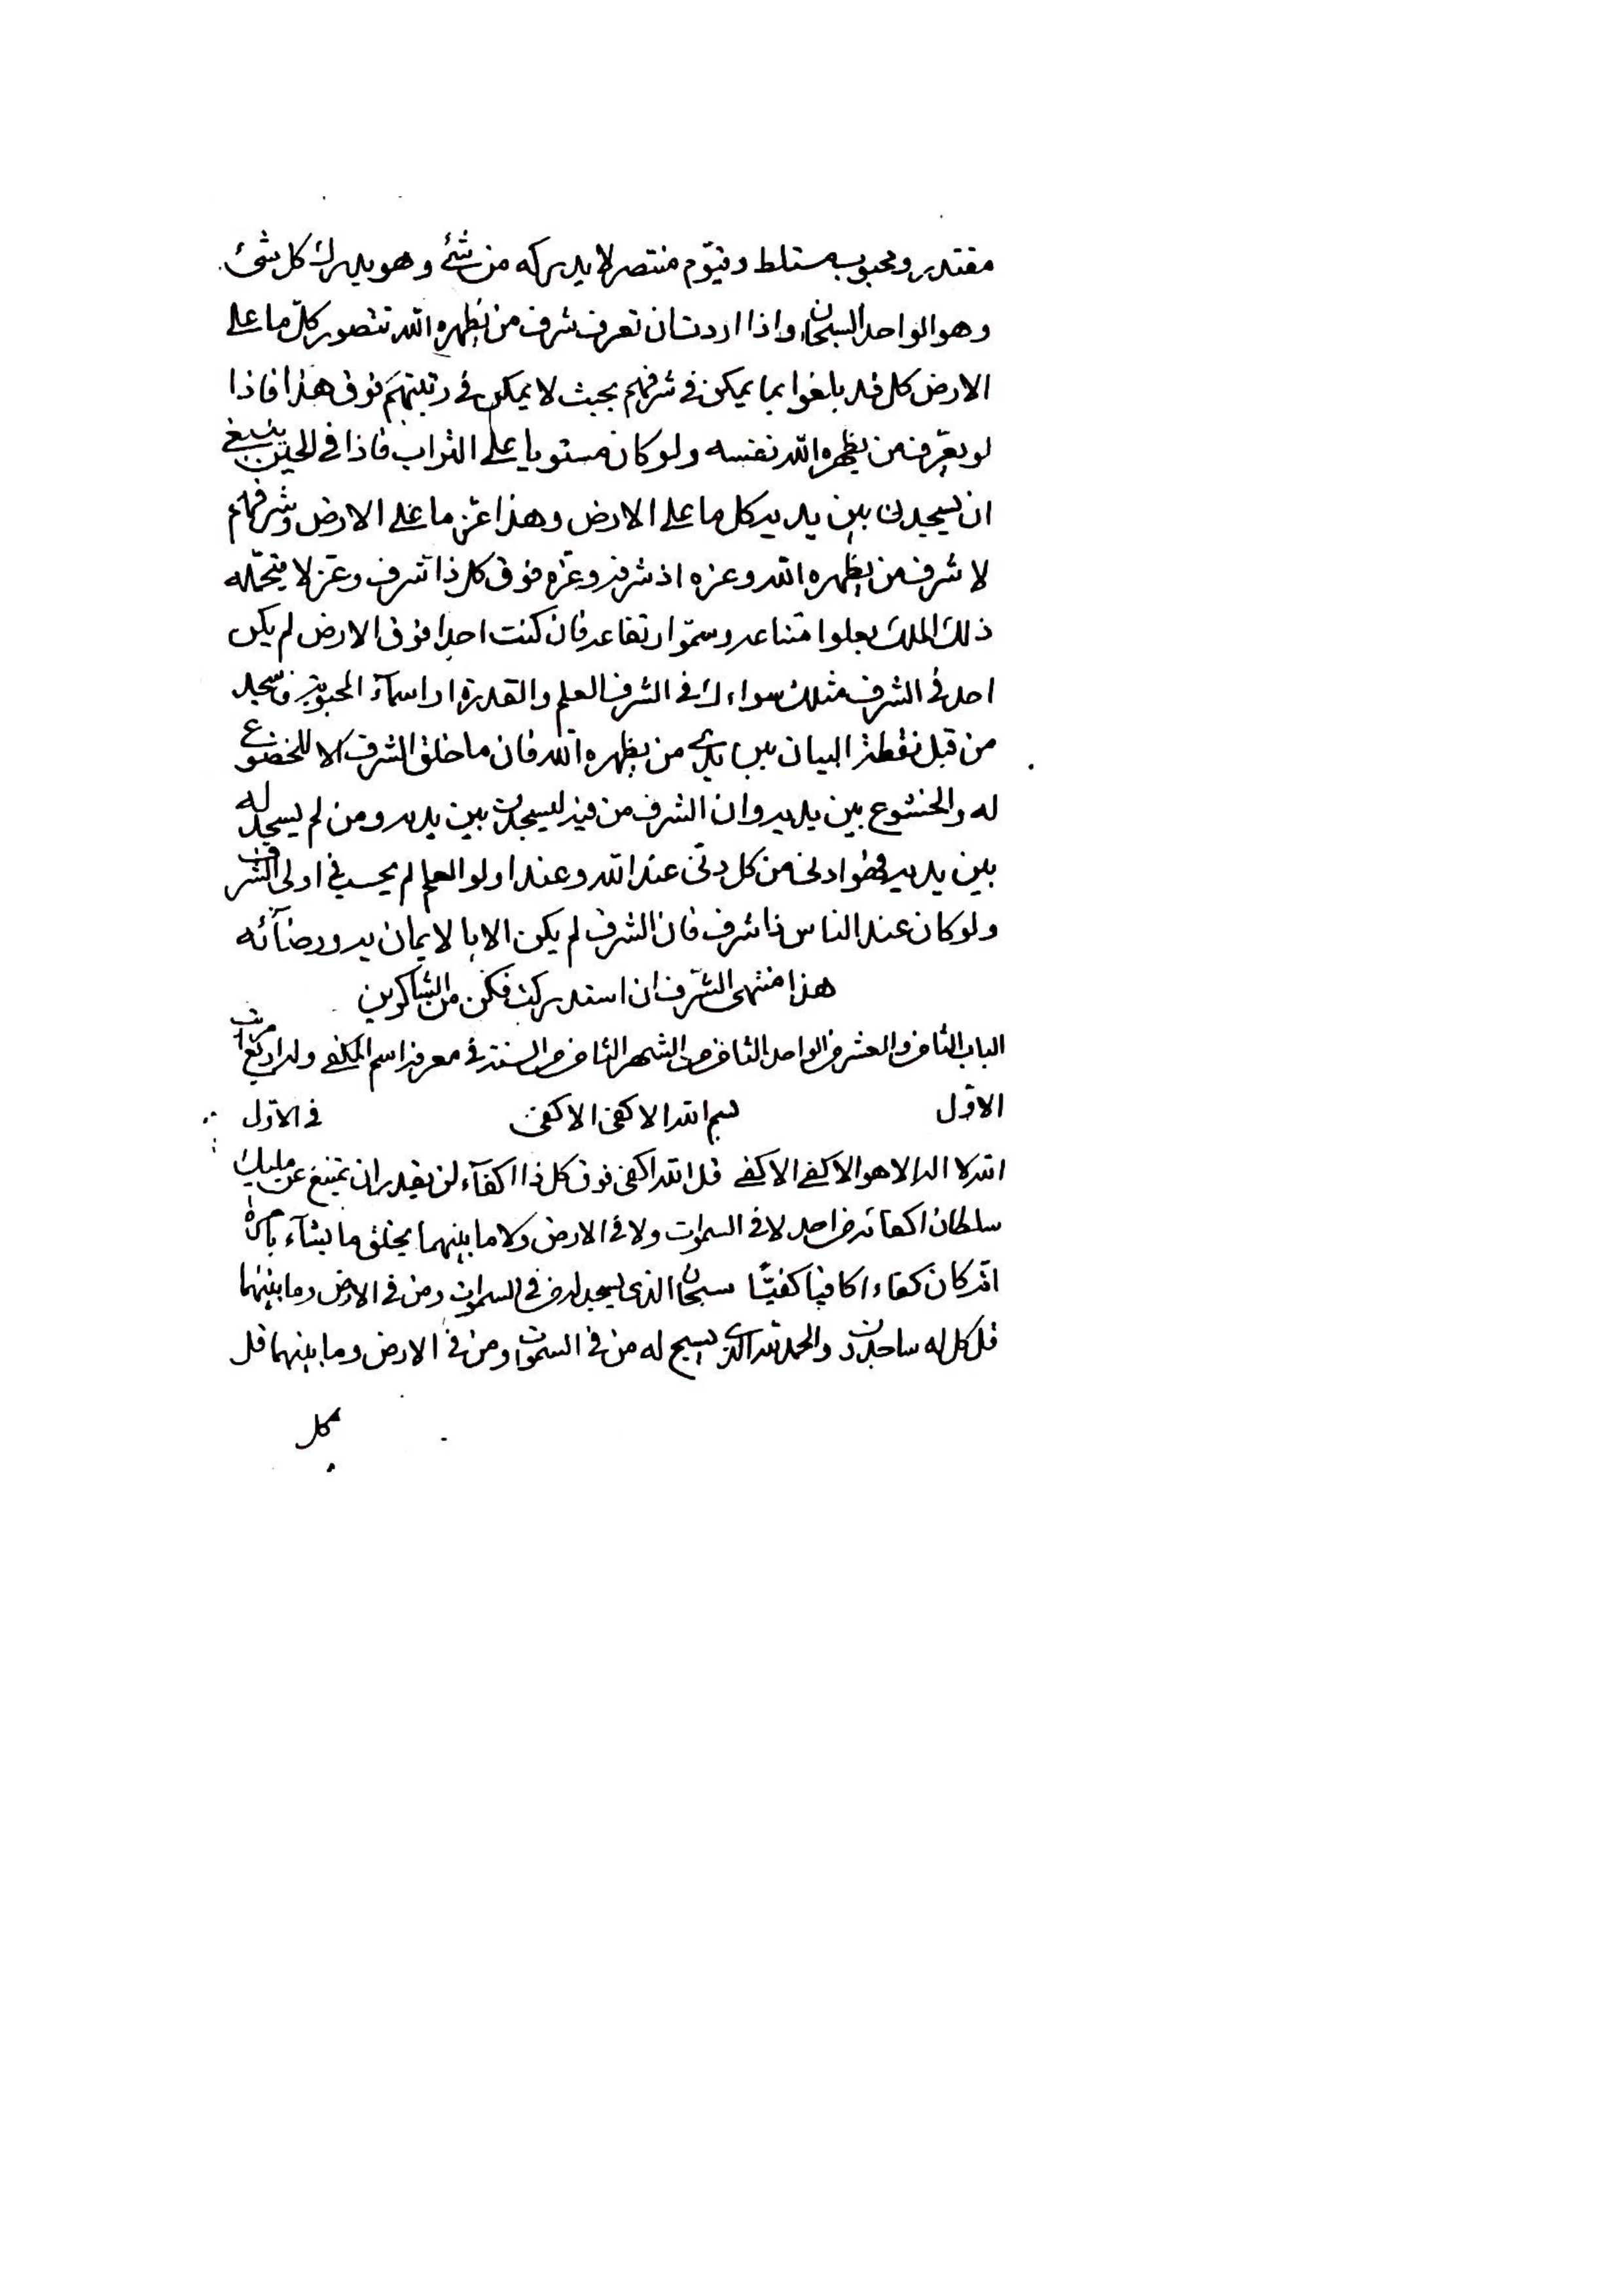 مقتدر ومحبوب متسلط وقيّوم منتصر لا يدركه من شئ وهو يدرك كل شئ
وهو الواحد السبحان واذا اردت ان تعرف شرف من يظهره الله تتصور كلّ ما على
الارض كل قد بلغوا بما يمكن في شرفهم بحيث لا يمكن في رتبتهم فوق هذا فاذا
لو يعرّف من يظهره الله نفسه ولو كان مستويا على التراب فاذا في الحين ينبغي
ان يسجدن بين يديه كل ما على الارض وهذا عزّ ما على الارض وشرفهم
لا شرف من يظهره الله وعزه اذ شرفه وعزه فوق كل ذا شرف وعز لا يتحمّله
ذلك الملك بعلو امتناعه وسموّ ارتفاعه فان كنت احدا فوق الارض لم يكن
احد في الشرف مثلك سواءك في الشرف العلم والقدرة او اسمآء المحبوبية فاسجد
من قبل نقطة البيان بين يدي من يظهره الله فان ما خلق الشرف الا للخضوع
له والخشوع بين يديه وان الشرف من فيه ليسجدن بين يديه ومن لم يسجد له
بين يديه فهو ادنى من كل دنّى عند الله وعند اولو العلم لم يحسب في اولى الشرف
ولو كان عند الناس ذا شرف فان الشرف لم يكن الا بالايمان به ورضآئه
هذا منتهى الشرف ان استدركت فكن من الشاكرين
الباب الثامن والعشر من الواحد الثامن من الشهر الثامن من السنة في معرفة اسم المكفى وله اربع مراتب
الاوّل بسم الله الاكفى الاكفى في الاوّل
الله لا اله الا هو الاكفى الاكفى قل الله اكفى فوق كل ذا اكفآء لن يقدر ان يمتنع عن مليك
سلطان اكفائه من احد لا في السموات ولا في الارض ولا ما بينهما يخلق ما يشآء بامره
انه كان كفاءا كافيا كفيّا سبحان الذى يسجد له من في السموات ومن في الارض وما بينهما
قل كل له ساجدون والحمد لله الذى يسبح له من في السموات ومن في الارض وما بينهما قل
كل